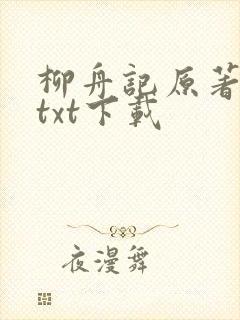 柳舟記原著
txt下載
夜漫舞